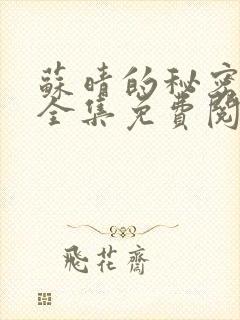 蘇晴的秘密
全集免費閱
飛花齋